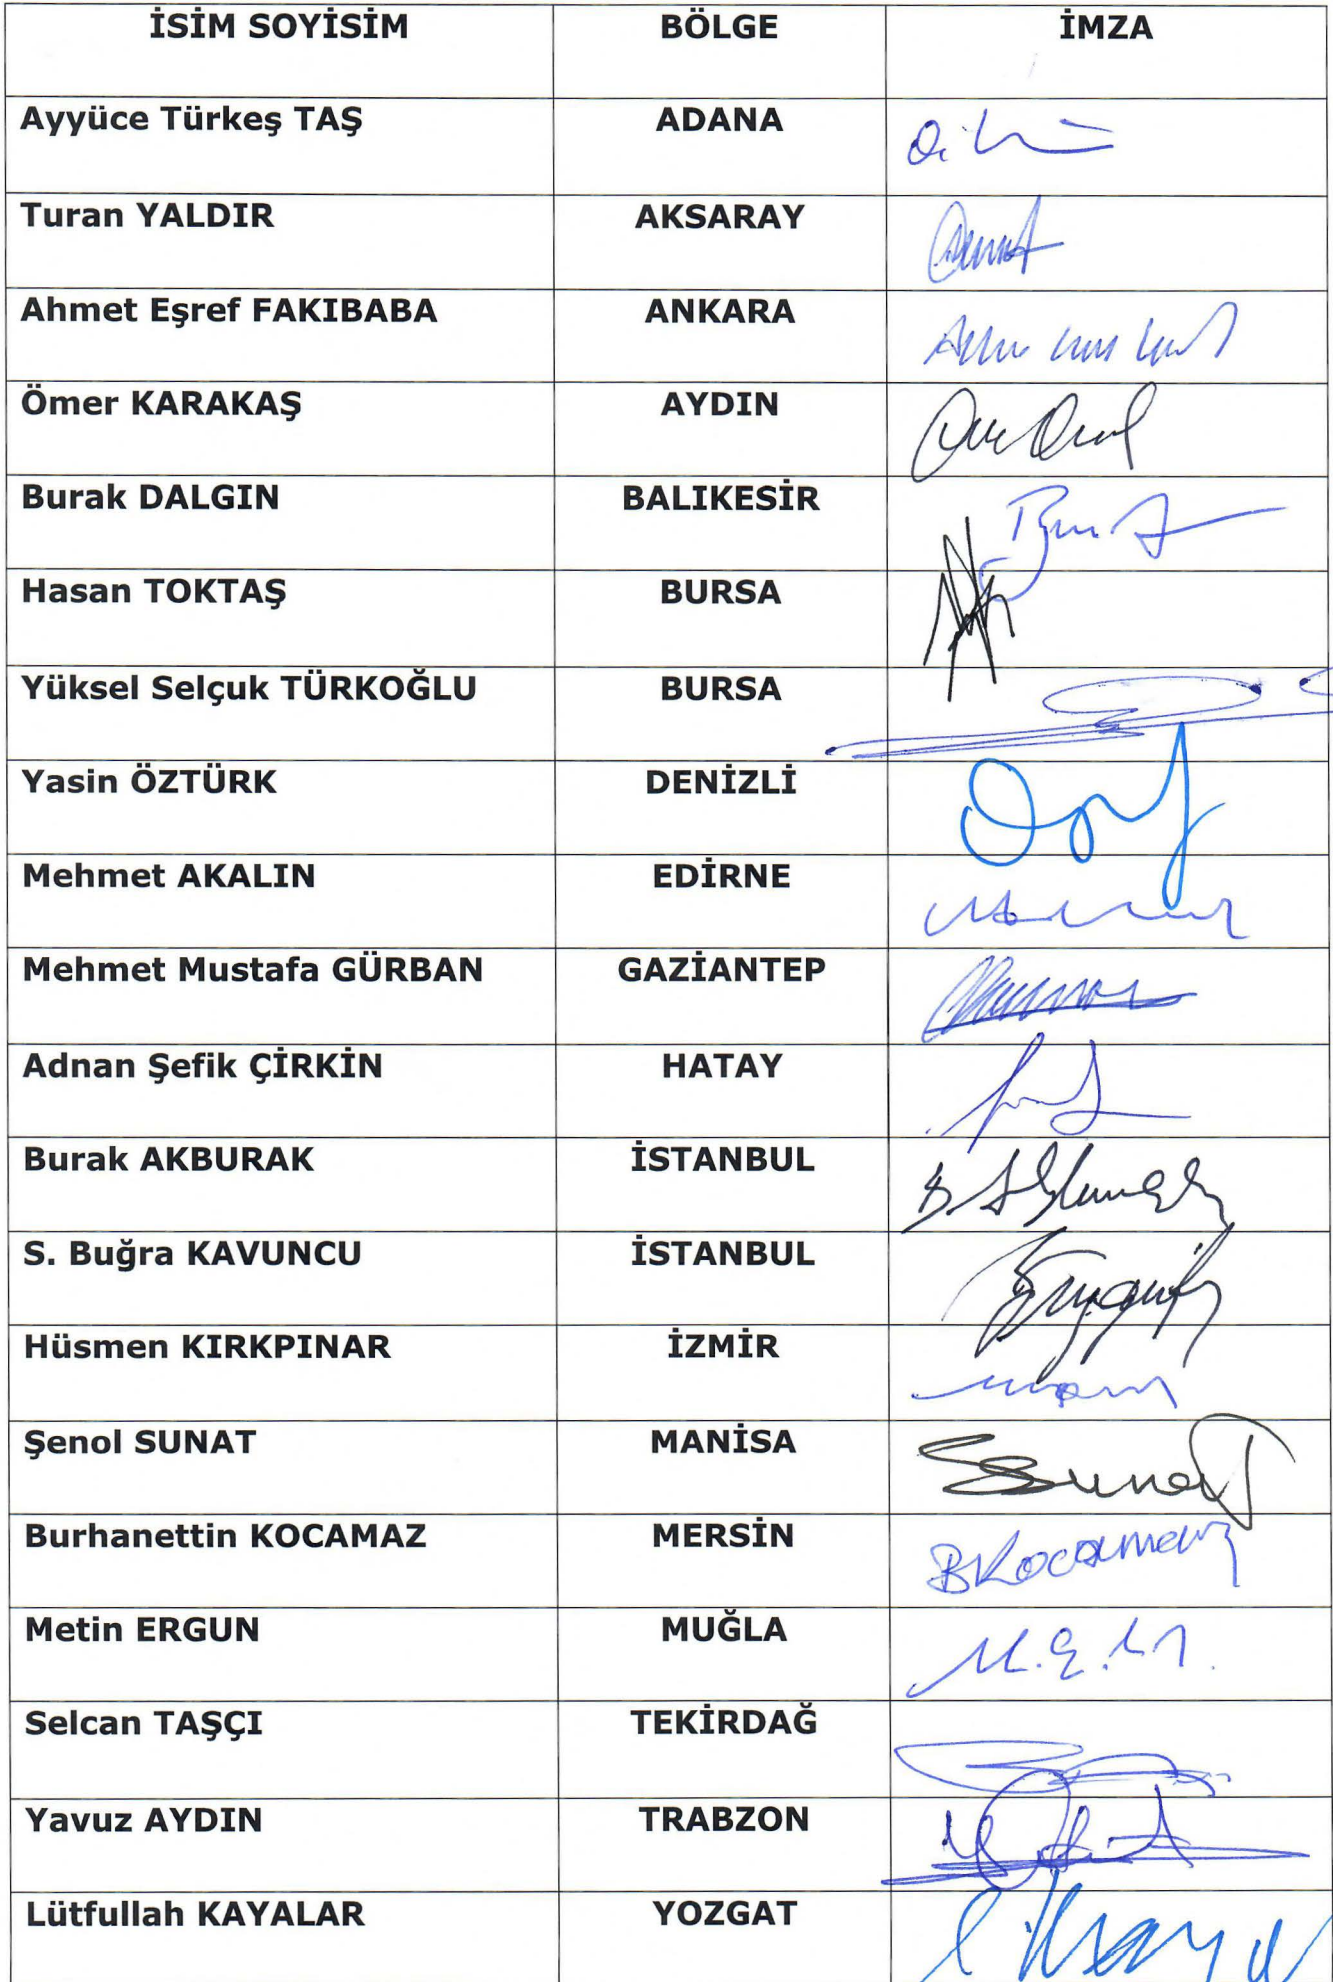 İSİM SOYİSİM BÖLGE İMZA
Ayyüce Türkeş TAŞ ADANA
Turan YALDIR AKSARAY
Ahmet Eşref FAKIBABA ANKARA
Ömer KARAKAŞ AYDIN
Burak DALGIN BALIKESİR
Hasan TOKTAŞ BURSA
Yüksel Selçuk TÜRKOĞLU BURSA
Yasin ÖZTÜRK DENİZLİ
Mehmet AKALIN EDİRNE
Mehmet Mustafa GÜRBAN GAZİANTEP
Adnan Şefik ÇİRKİN HATAY
Burak AKBURAK İSTANBUL
S. Buğra KAVUNCU İSTANBUL
Hüsmen KIRKPINAR İZMİR
Şenol SUNAT MANİSA SSunat
Burhanettin KOCAMAZ MERSİN BKocamaz
Metin ERGUN MUĞLA
Selcan TAŞÇI TEKİRDAĞ
Yavuz AYDIN TRABZON
Lütfullah KAYALAR YOZGAT